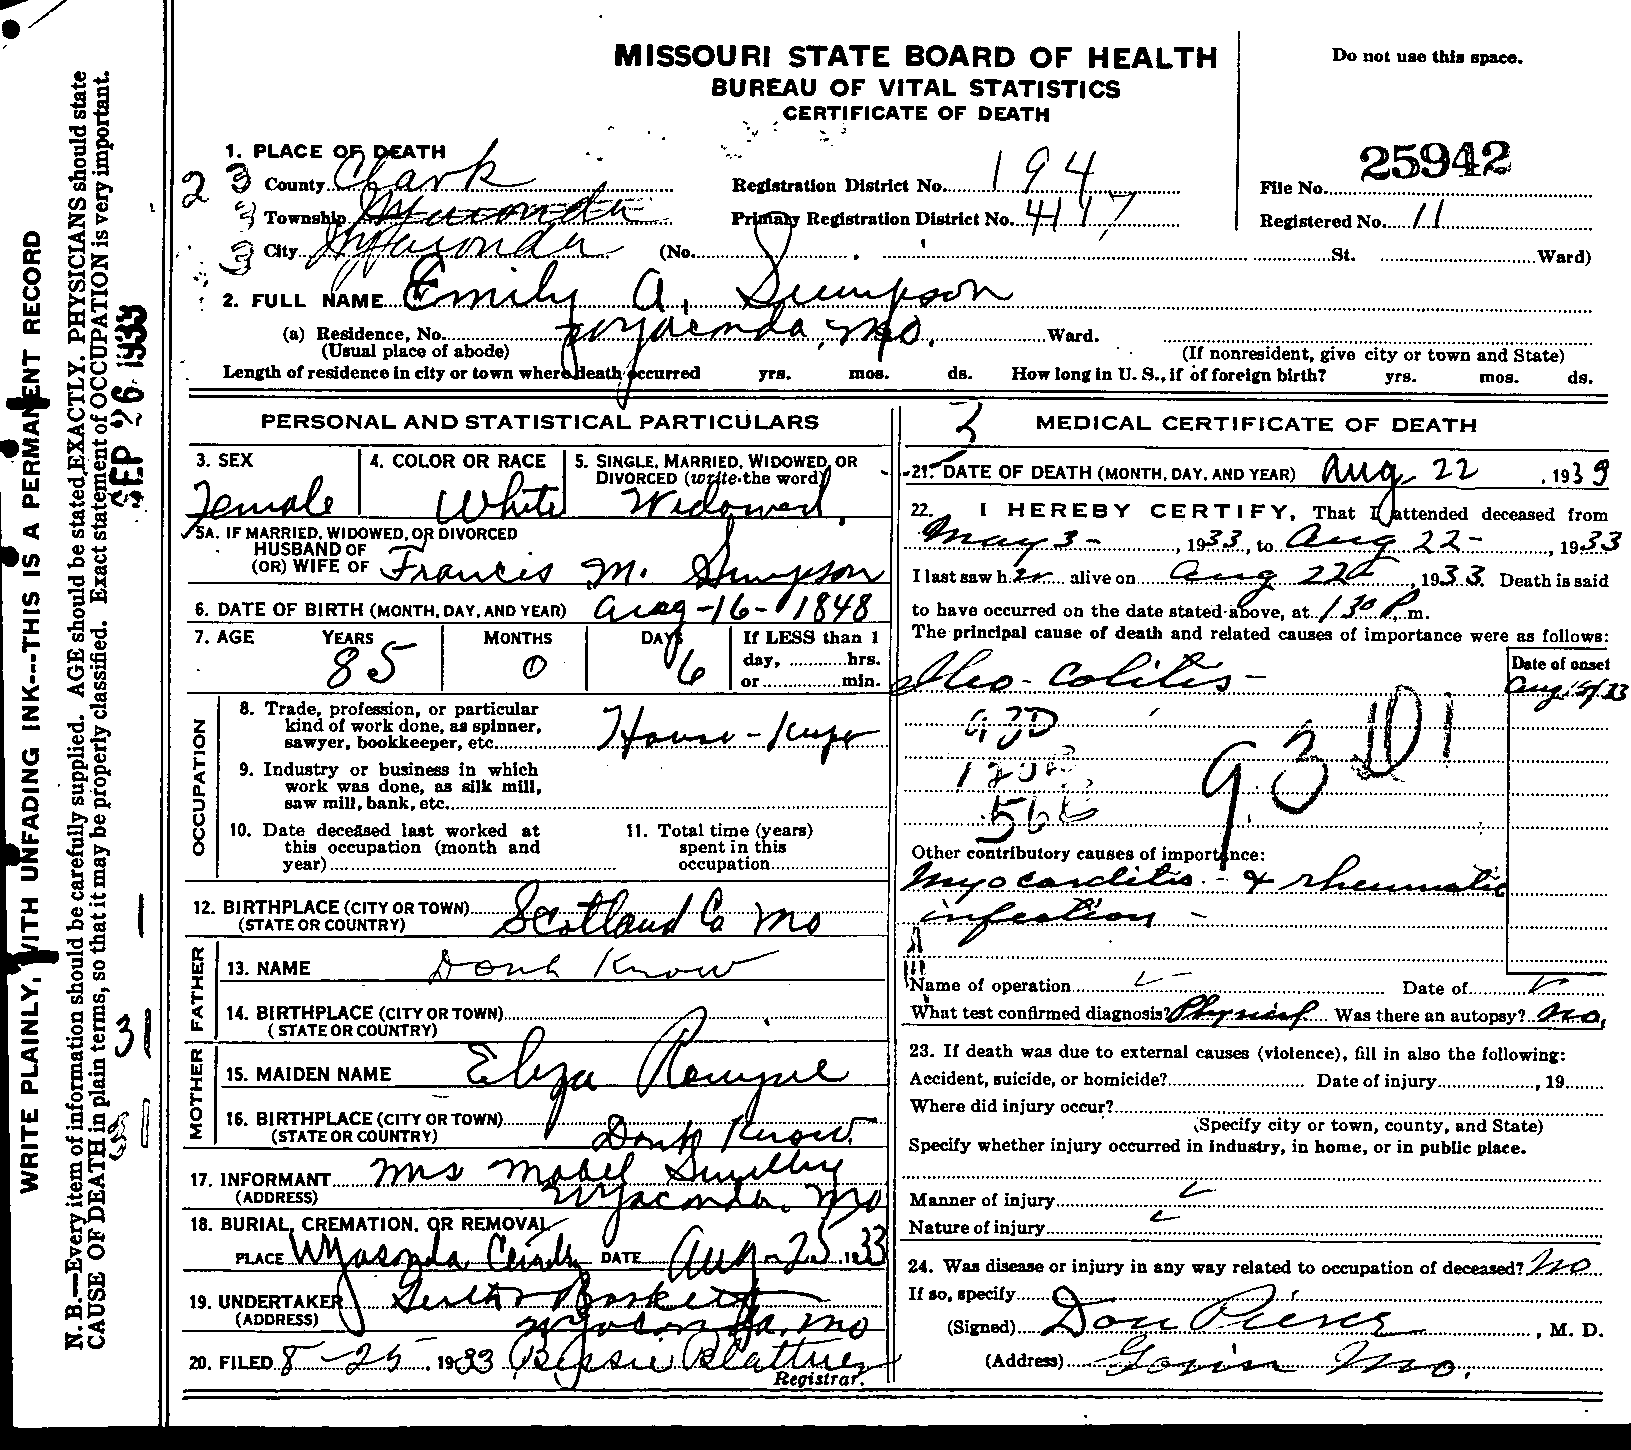 MISSOURI STATE BOARD OF HEALTH
BUREAU OF VITAL STATISTICS
CERTIFICATE OF DEATH
Do not use this space.
1. PLACE OF DEATH
2 3 County Clark Registration District No. 194 File No. 25942
3 Township Wyaconda Primary Registration District No. 4117 Registered No. 11
3 City Wyaconda (No. St. Ward)
2. FULL NAME Emily A. Simpson
(a) Residence, No. Wyaconda, Mo. Ward.
(Usual place of abode) (If nonresident, give city or town and State)
Length of residence in city or town where death occurred yrs. mos. ds. How long in U. S., if of foreign birth? yrs. mos. ds.
PERSONAL AND STATISTICAL PARTICULARS
3. SEX Female
4. COLOR OR RACE White
5. SINGLE, MARRIED, WIDOWED, OR DIVORCED (write the word) Widowed.
5A. IF MARRIED, WIDOWED, OR DIVORCED
HUSBAND OF
(OR) WIFE OF Francis M. Simpson
6. DATE OF BIRTH (MONTH, DAY, AND YEAR) Aug-16-1848
7. AGE YEARS 85 MONTHS 0 DAYS 6 If LESS than 1
day, hrs.
or min.
OCCUPATION
8. Trade, profession, or particular
kind of work done, as spinner,
sawyer, bookkeeper, etc. House-Keeper
9. Industry or business in which
work was done, as silk mill,
saw mill, bank, etc.
10. Date deceased last worked at
this occupation (month and
year)
11. Total time (years)
spent in this
occupation
12. BIRTHPLACE (CITY OR TOWN) Scotland Co Mo
(STATE OR COUNTRY)
FATHER
13. NAME Dont Know
14. BIRTHPLACE (CITY OR TOWN)
(STATE OR COUNTRY)
MOTHER
15. MAIDEN NAME Eliza
16. BIRTHPLACE (CITY OR TOWN)
(STATE OR COUNTRY) Dont Know
17. INFORMANT Mrs Mabel
(ADDRESS) Wyaconda, Mo
18. BURIAL, CREMATION, OR REMOVAL
PLACE Wyaconda DATE Aug-25 1933
19. UNDERTAKER
(ADDRESS) Wyaconda, Mo
20. FILED 8-25, 1933 Bessie Blattner
Registrar.
MEDICAL CERTIFICATE OF DEATH
21. DATE OF DEATH (MONTH, DAY, AND YEAR) Aug. 22, 1933
22. I HEREBY CERTIFY, That I attended deceased from
May 3-, 1933, to Aug 22-, 1933
I last saw her alive on Aug 22, 1933. Death is said
to have occurred on the date stated above, at 1 30 P. m.
The principal cause of death and related causes of importance were as follows:
Date of onset
Ileo-Colitis-
93D
93 D1
56
Other contributory causes of importance:
Myocarditis - & rheumatic
infection -
Name of operation Date of
What test confirmed diagnosis? Physical Was there an autopsy? No.
23. If death was due to external causes (violence), fill in also the following:
Accident, suicide, or homicide? Date of injury, 19
Where did injury occur?
(Specify city or town, county, and State)
Specify whether injury occurred in industry, in home, or in public place.
Manner of injury
Nature of injury
24. Was disease or injury in any way related to occupation of deceased? No
If so, specify
(Signed) Don Pierce, M. D.
(Address) Gorin Mo.
WRITE PLAINLY, WITH UNFADING INK---THIS IS A PERMANENT RECORD
N. B.—Every item of information should be carefully supplied. AGE should be stated EXACTLY. PHYSICIANS should state
CAUSE OF DEATH in plain terms, so that it may be properly classified. Exact statement of OCCUPATION is very important.
SEP 26 1933